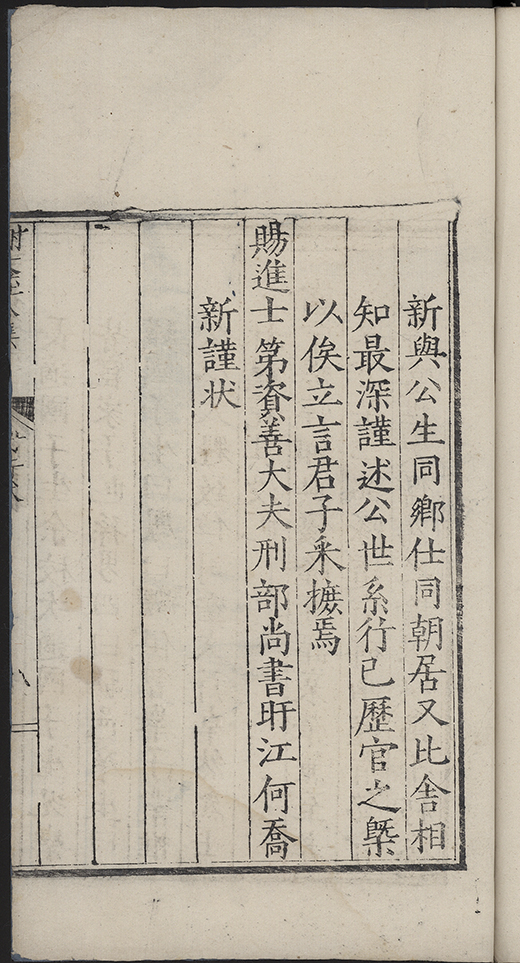 新與公生同鄉仕同朝居又比舎相
知最深謹述公世系行已歷官之槩
以俟立言君子采摭焉
賜進士第資善大夫刑部尚書旴江何喬
新謹状